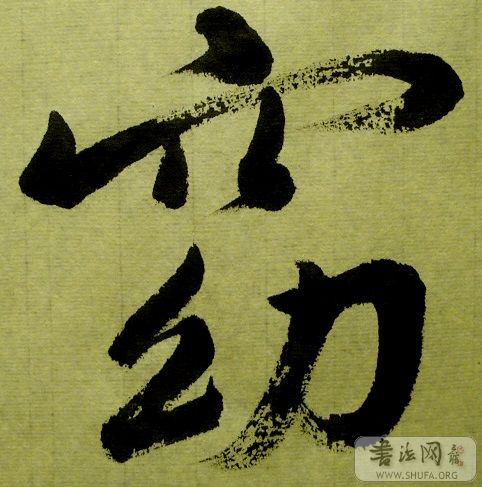 窈
書法网
WWW.SHUFA.ORG